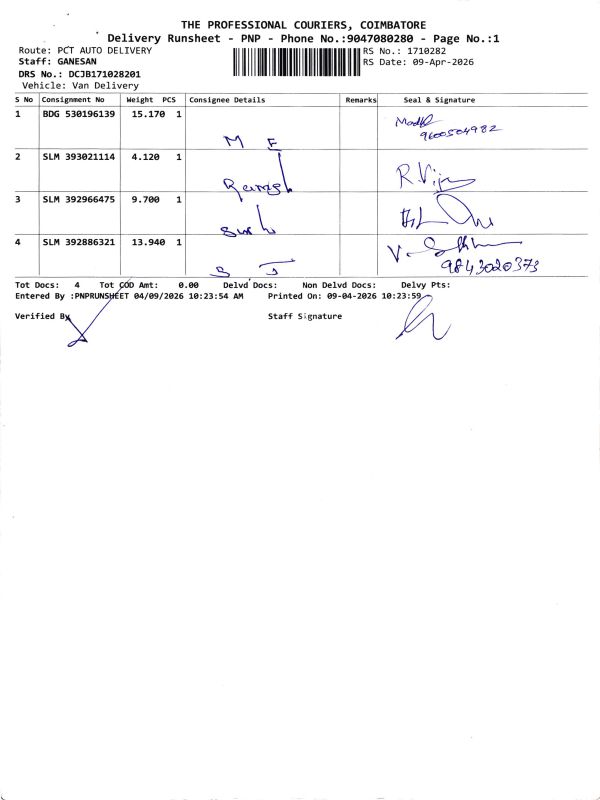 THE PROFESSIONAL COURIERS, COIMBATORE
Delivery Runsheet - PNP - Phone No.:9047080280 - Page No.:1
Route: PCT AUTO DELIVERY RS No.: 1710282
Staff: GANESAN RS Date: 09-Apr-2026
DRS No.: DCJB171028201
Vehicle: Van Delivery
S No Consignment No Weight PCS Consignee Details Remarks Seal & Signature
1 BDG 530196139 15.170 1
9600504982
M E
2 SLM 393021114 4.120 1
R. Vijay
Ramesh
3 SLM 392966475 9.700 1
4 SLM 392886321 13.940 1
9843020373
S I
Tot Docs: 4 Tot COD Amt: 0.00 Delvd Docs: Non Delvd Docs: Delvy Pts:
Entered By :PNPRUNSHEET 04/09/2026 10:23:54 AM Printed On: 09-04-2026 10:23:59
Verified By Staff Signature